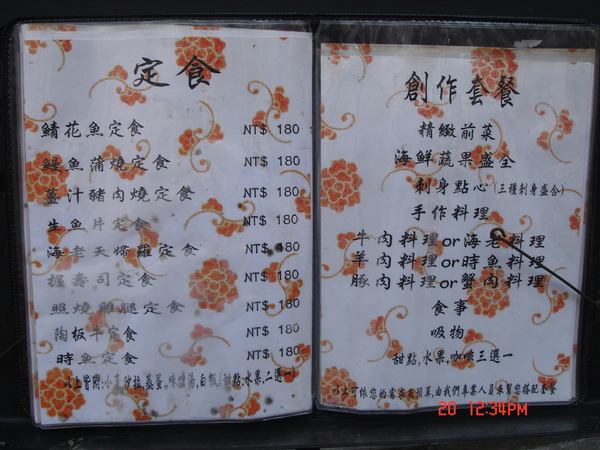 定食
鯖花魚定食 NT$ 180
鰻魚蒲燒定食 NT$ 180
薑汁豬肉燒定食 NT$ 180
生魚片定食 NT$ 180
海老天婦羅定食 NT$ 180
握壽司定食 NT$ 180
照燒雞腿定食 NT$ 180
陶板牛定食 NT$ 180
時魚定食 NT$ 180
以上皆附:小菜,沙拉,蒸蛋,味噌湯,白飯,(甜點,水果,二選一)
創作套餐
精緻前菜
海鮮蔬果盛合
刺身點心(三種刺身盛合)
手作料理
牛肉料理or海老料理
羊肉料理or時魚料理
豚肉料理or蟹肉料理
食事
吸物
甜點,水果,咖啡三選一
以上可依您的需求及預算,由我們專業人員來幫您搭配套餐
20 12:34PM